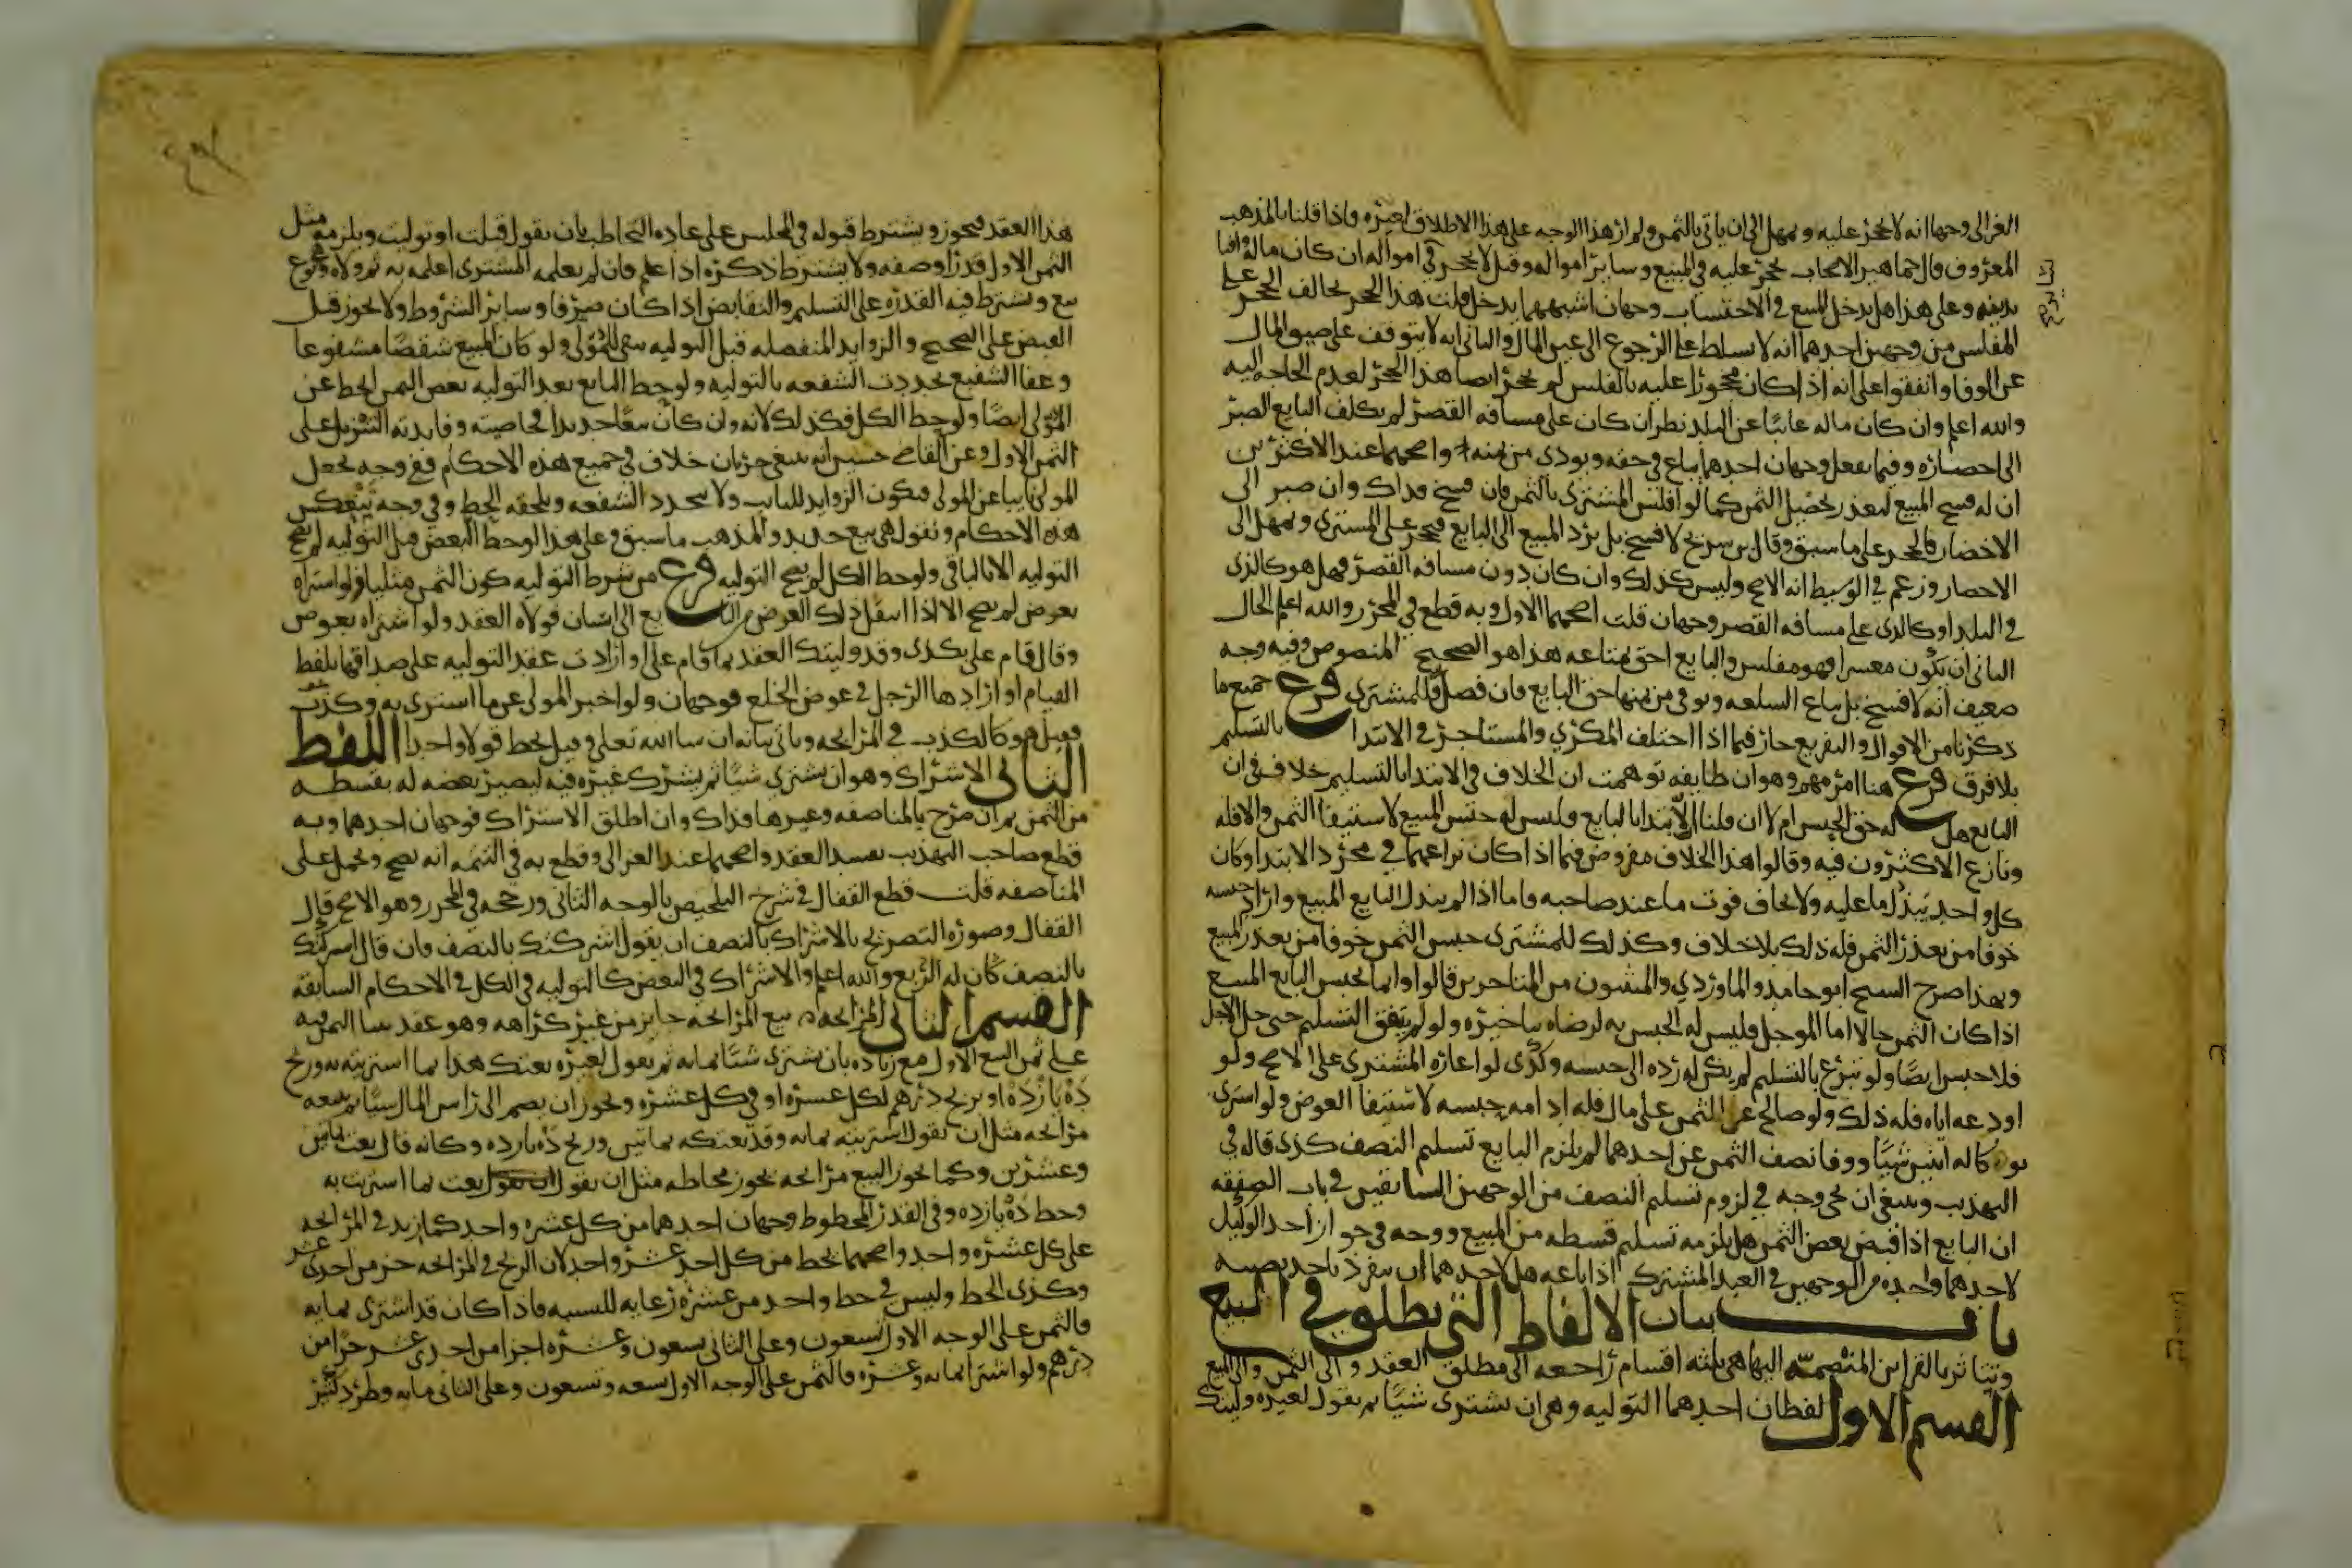 الغزالي وجها انه لا يحجر عليه ويمهل الى ان ياتي بالثمن ولم ار هذا الوجه على هذا الاطلاق لغيره واذا قلنا بالمذهب
المعروف قال جماهير الاصحاب يحجر عليه في المبيع وساير امواله وقيل لا يحجر في امواله ان كان ماله وافيا
بديونه وعلى هذا هل يدخل المبيع في الاحتساب وجهان اشبههما يدخل قلت هذا الحجر يخالف الحجر على
المفلس من وجهين احدهما انه لا يسلط على الرجوع الى عين المال والثاني انه لا يتوقف على ضيق المال
عن الوفا واتفقوا على انه اذا كان محجورا عليه بالفلس لم يحجر ايضا هذا الحجر لعدم الحاجه اليه
والله اعلم وان كان ماله غايبا عن البلد نظر ان كان على مسافه القصر لم يكلف البايع الصبر
الى احضاره وفيما يفعل وجهان احدهما يباع في حقه ويودى من ثمنه واصحهما عند الاكثرين
ان له فسخ المبيع لتعذر تحصيل الثمن كما لو افلس المشتري بالثمن فان فسخ فذاك وان صبر الى
الاحضار فالحجر على ما سبق وقال ابن سريج لا فسخ بل يرد المبيع الى البايع ويحجر على المشتري ويمهل الى
الاحضار وزعم في الوسيط انه الاصح وليس كذلك وان كان دون مسافه القصر فهل هو كالذي
في البلد او كالذي على مسافه القصر وجهان قلت اصحهما الاول وبه قطع في المحرر والله اعلم الحال
الثاني ان يكون معسرا فهو مفلس والبايع احق بمتاعه هذا هو الصحيح المنصوص وفيه وجه
ضعيف انه لا فسخ بل يباع السلعه ويوفى من ثمنها حق البايع فان فضل فللمشتري فرع جميع ما
ذكرنا من الاقوال والتفريع جار فيما اذا اختلف المكري والمستاجر في الابتدا بالتسليم
بلا فرق فرع هنا امر مهم وهو ان طايفه توهمت ان الخلاف في الابتدا بالتسليم خلاف في ان
البايع هل له حق الحبس ام لا ان قلنا الابتدا بالبايع فليس له حبس المبيع لاستيفا الثمن والا فله
ونازع الاكثرون فيه وقالوا هذا الخلاف مفروض فيما اذا كان نزاعهما في مجرد الابتدا وكان
كل واحد يبذل ما عليه ولا يخاف فوت ما عند صاحبه فاما اذا لم يبذل البايع المبيع واراد حبسه
خوفا من تعذر الثمن فله ذلك بلا خلاف وكذلك للمشتري حبس الثمن خوفا من تعذر المبيع
وبهذا صرح الشيخ ابو حامد والماوردي والمثبتون من المتاخرين قالوا وانما يحبس البايع المبيع
اذا كان الثمن حالا اما الموجل فليس له الحبس به لرضاه بتاخيره ولو لم يتفق التسليم حتى حل الاجل
فلا حبس ايضا ولو تبرع بالتسليم لم يكن له رده الى حبسه وكذى لو اعاره المشتري على الاصح ولو
اودعه اياه فله ذلك ولو صالح عن الثمن على مال فله ادامه حبسه لاستيفا العوض ولو اشترى
بوكاله اثنين شيا ووفا نصف الثمن عن احدهما لم يلزم البايع تسليم النصف كذى قاله في
التهذيب وينبغي ان يجي وجه في لزوم تسليم النصف من الوجهين السابقين في باب الصفقه
ان البايع اذا قبض بعض الثمن هل يلزمه تسليم قسطه من المبيع ووجه في جواز اخذ الوكيل
لاحدهما وحده من الوجهين في العبد المشترك اذا باعه هل لاحدهما ان ينفرد باخذ نصيبه
باب بيان الالفاظ التي يطلق في البيع
وتتاثر بالقراين المنضمه اليها هي ثلثه اقسام راجعه الى مطلق العقد والى الثمن والى المبيع
القسم الاول لفظان احدهما التوليه وهي ان يشتري شيا ثم يقول لغيره وليتك
هذا العقد فيجوز ويشترط قبوله في المجلس على عاده التخاطب بان يقول قبلت او توليت ويلزمه مثل
الثمن الاول قدرا وصفه ولا يشترط ذكره اذا علم فان لم يعلمه المشتري اعلمه به ثم ولاه وهو نوع
بيع ويشترط فيه القدره على التسليم والتقابض اذا كان صرفا وساير الشروط ولا يجوز قبل
القبض على الصحيح والزوايد المنفصله قبل التوليه تبقى للمولى ولو كان المبيع شقصا مشفوعا
وعفا الشفيع تجددت الشفعه بالتوليه ولو حط البايع بعد التوليه بعض الثمن انحط عن
المولى ايضا ولو حط الكل فكذلك لانه وان كان بيعا جديدا فخاصيته وفايدته التنزيل على
الثمن الاول وعن القاضي حسين انه ينبغي جريان خلاف في جميع هذه الاحكام ففي وجه يجعل
المولى نايبا عن المولى فيكون الزوايد للنايب ولا تتجدد الشفعه ويلحقه الحط وفي وجه تنعكس
هذه الاحكام ونقول هي بيع جديد والمذهب ما سبق وعلى هذا لو حط البعض قبل التوليه لم تصح
التوليه الا بالباقي ولو حط الكل لم يصح التوليه فرع من شرط التوليه كون الثمن مثليا فلو اشتراه
بعرض لم يصح الا اذا انتقل ذلك العرض من البايع الى انسان فولاه العقد ولو اشتراه بعرض
وقال قام علي بكذى وقد وليتك العقد بما قام علي او ارادت عقد التوليه على صداقها بلفظ
القيام او ارادها الرجل في عوض الخلع فوجهان ولو اخبر المولي عن ما اشترى به وكذب
فقيل هو كالكذب في المرابحه وياتي بيانه ان شا الله تعلى وقيل يحط قولا واحدا اللفظ
الثاني الاشراك وهو ان يشتري شيا ثم يشرك غيره فيه ليصير بعضه له بقسطه
من الثمن ثم ان صرح بالمناصفه وغيرها فذاك وان اطلق الاشتراك فوجهان احدهما وبه
قطع صاحب التهذيب يفسد العقد واصحهما عند الغزالي وقطع به في التتمه انه يصح ويحمل على
المناصفه قلت قطع القفال في شرح التلخيص بالوجه الثاني ورجحه في المحرر وهو الاصح قال
القفال وصوره التصريح بالاشراك بالنصف ان يقول اشركتك بالنصف فان قال اشركتك
بالنصف كان له الربع والله اعلم والاشراك في البعض كالتوليه في الكل في الاحكام السابقه
القسم الثاني المرابحه بيع المرابحه جايز من غير كراهه وهو عقد بنا الثمن فيه
على ثمن البيع الاول مع زياده بان يشتري شيا بمايه ثم يقول لغيره بعتك هذا بما اشتريته به وربح
ده يازده او بربح درهم لكل عشره او في كل عشره ويجوز ان يضم الى راس المال شيا ثم يبيعه
مرابحه مثل ان يقول اشتريته بمايه وقد بعتكه بماتين وربح ده يازده وكانه قال بعت بماتين
وعشرين وكما يجوز البيع مرابحه يجوز محاطه مثل ان يقول ان يقول بعت بما اشتريت به
وحط ده يازده وفي القدر المحطوط وجهان احدهما من كل عشره واحد كما زيد في المرابحه
على كل عشره واحد واصحهما يحط من كل احد عشر واحد لان الربح في المرابحه جز من احدى عشر
وكذى الحط وليس في حط واحد من عشره رعايه للنسبه فاذا كان قد اشترى بمايه
فالثمن على الوجه الاول تسعون وعلى الثاني تسعون وعشره اجزا من احدى عشر جزا من
درهم ولو اشترا بمايه وعشره فالثمن على الوجه الاول تسعه وتسعون وعلى الثاني مايه وطرد كثير